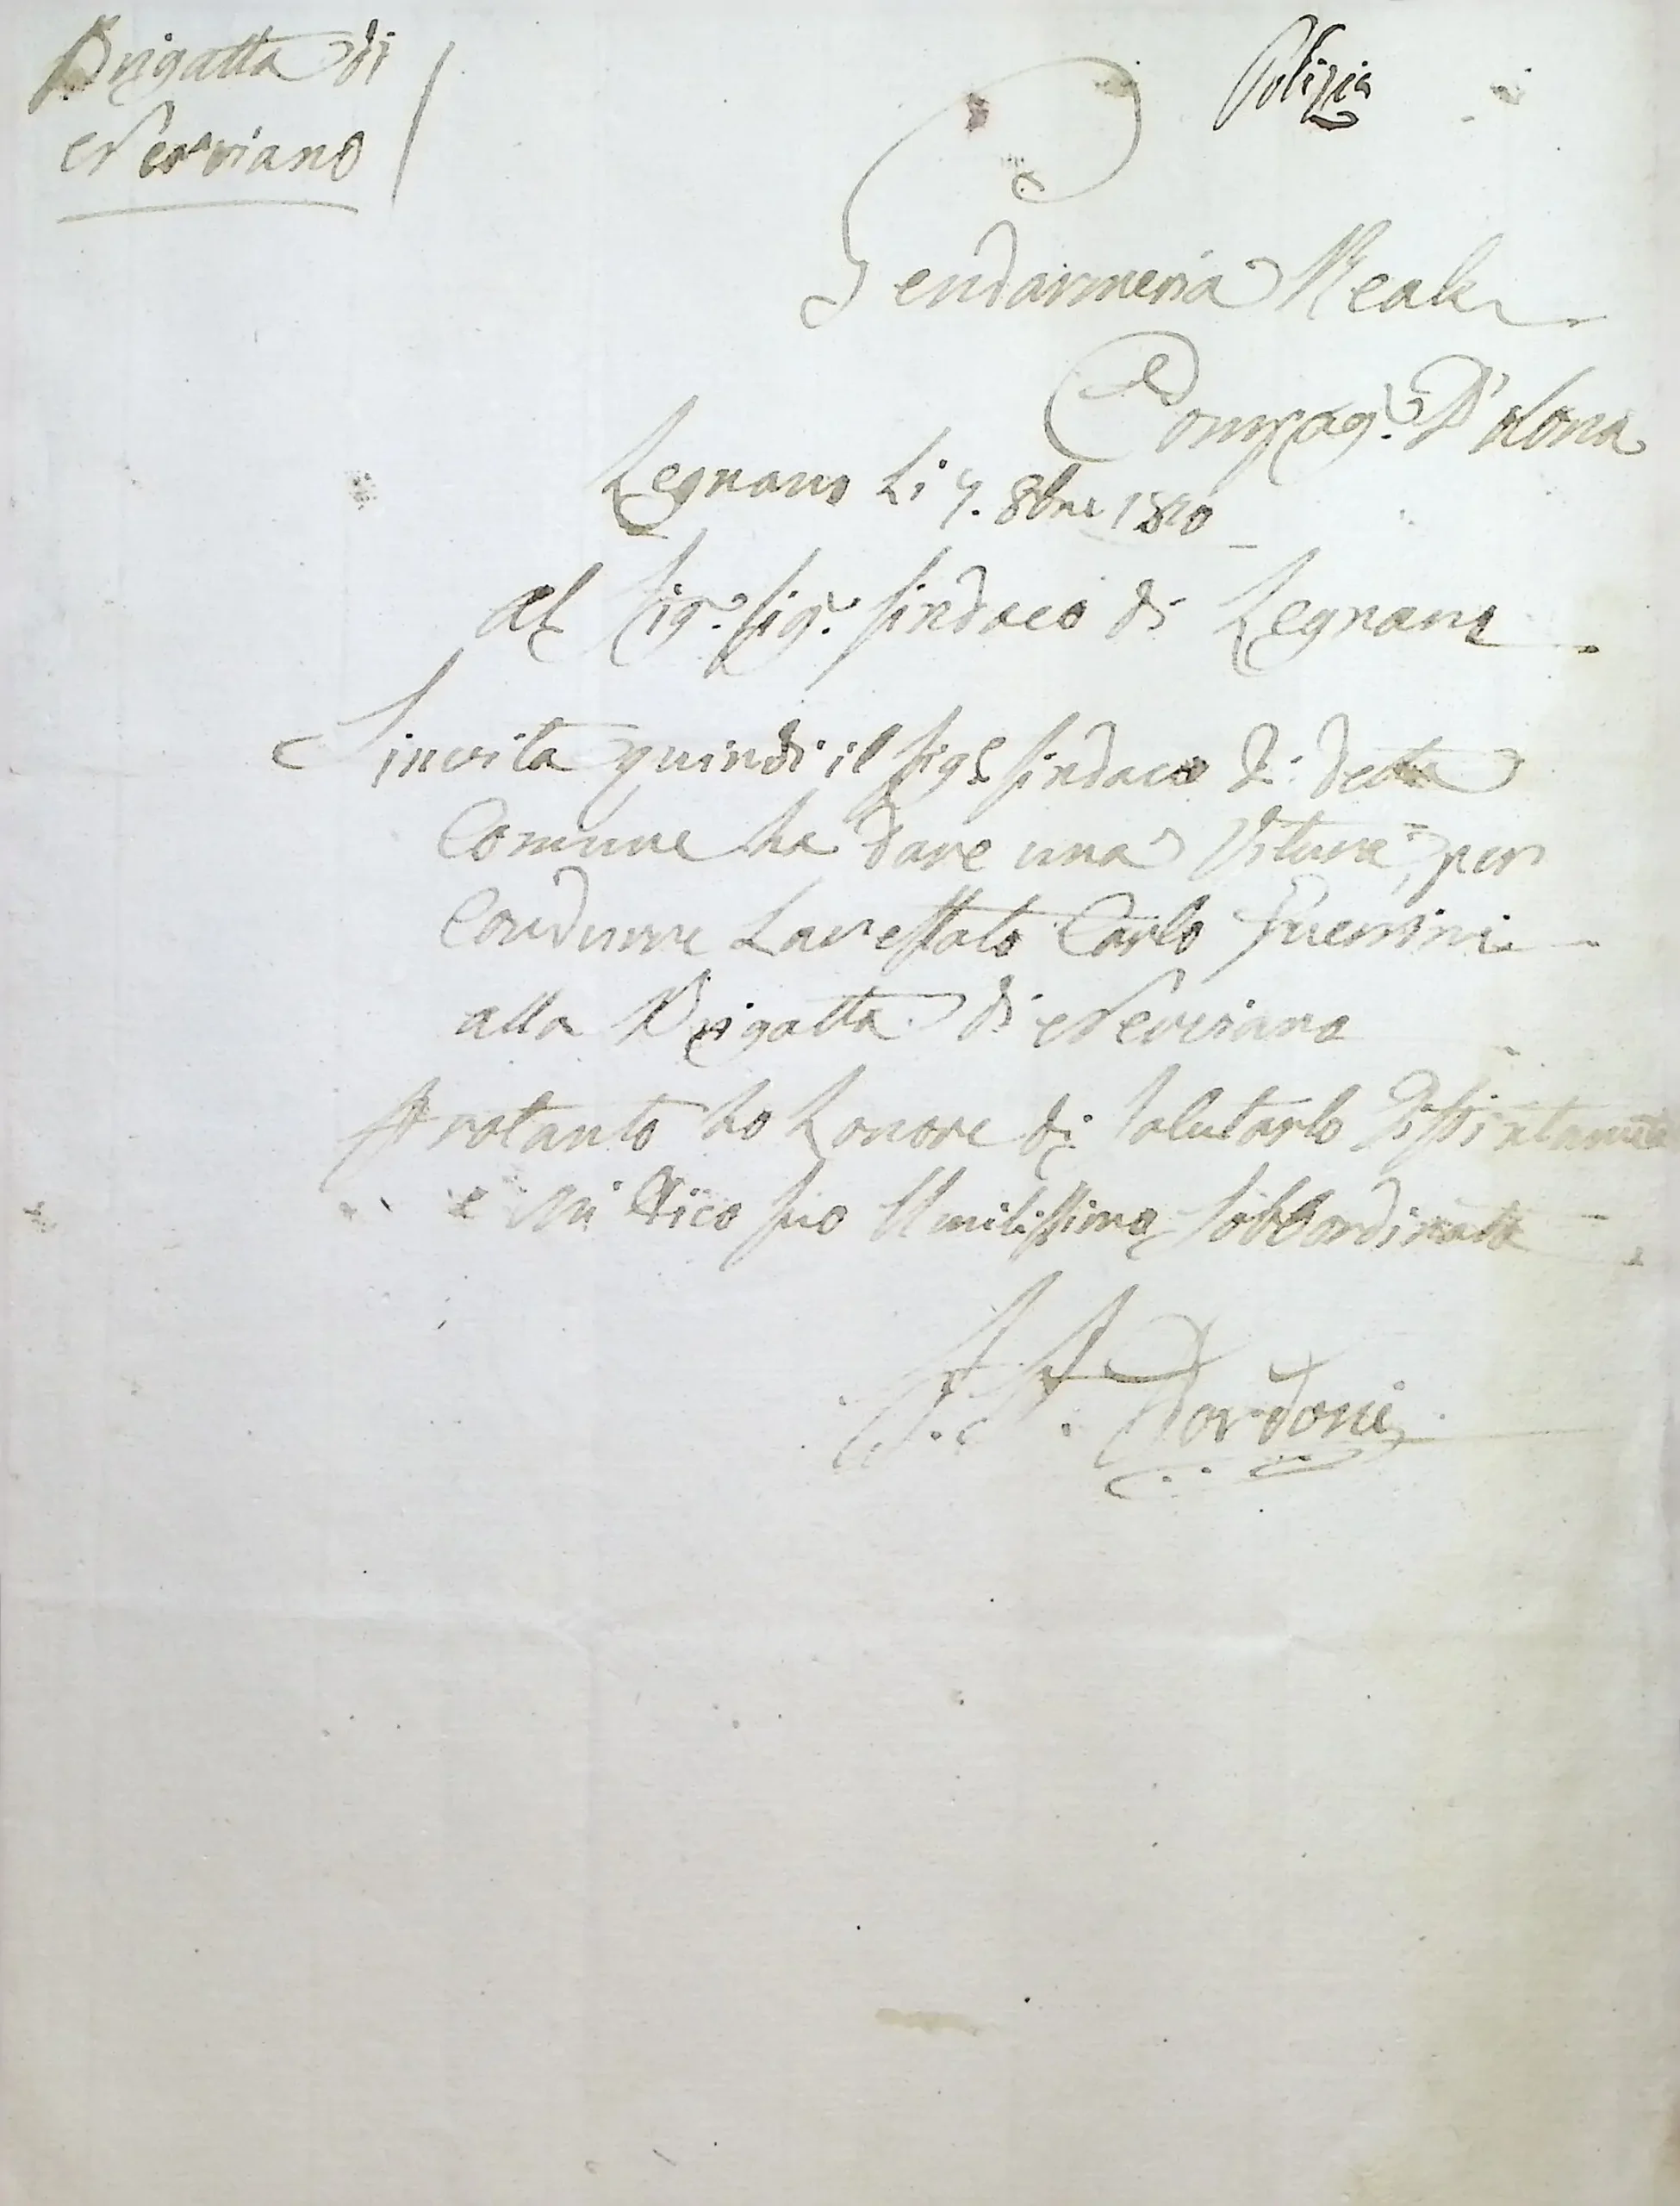 Brigatta di
Nerviano
Polizia
Gendarmeria Reale
Compag.a D'olona
Legnano Li 9. 8bre 1810
al Sig.r Sig.r Sindaco di Legnano
Sinvita quindi il Sigr Sindaco di detta
Comune ha dare una Vitura, per
Condurre Larestato Carlo Guerrini
alla Brigatta di Nerviano
Fratanto ho Lonore di Salutarlo Distintamente
e mi dico suo Umilissimo Sobbordinato
Dordoni